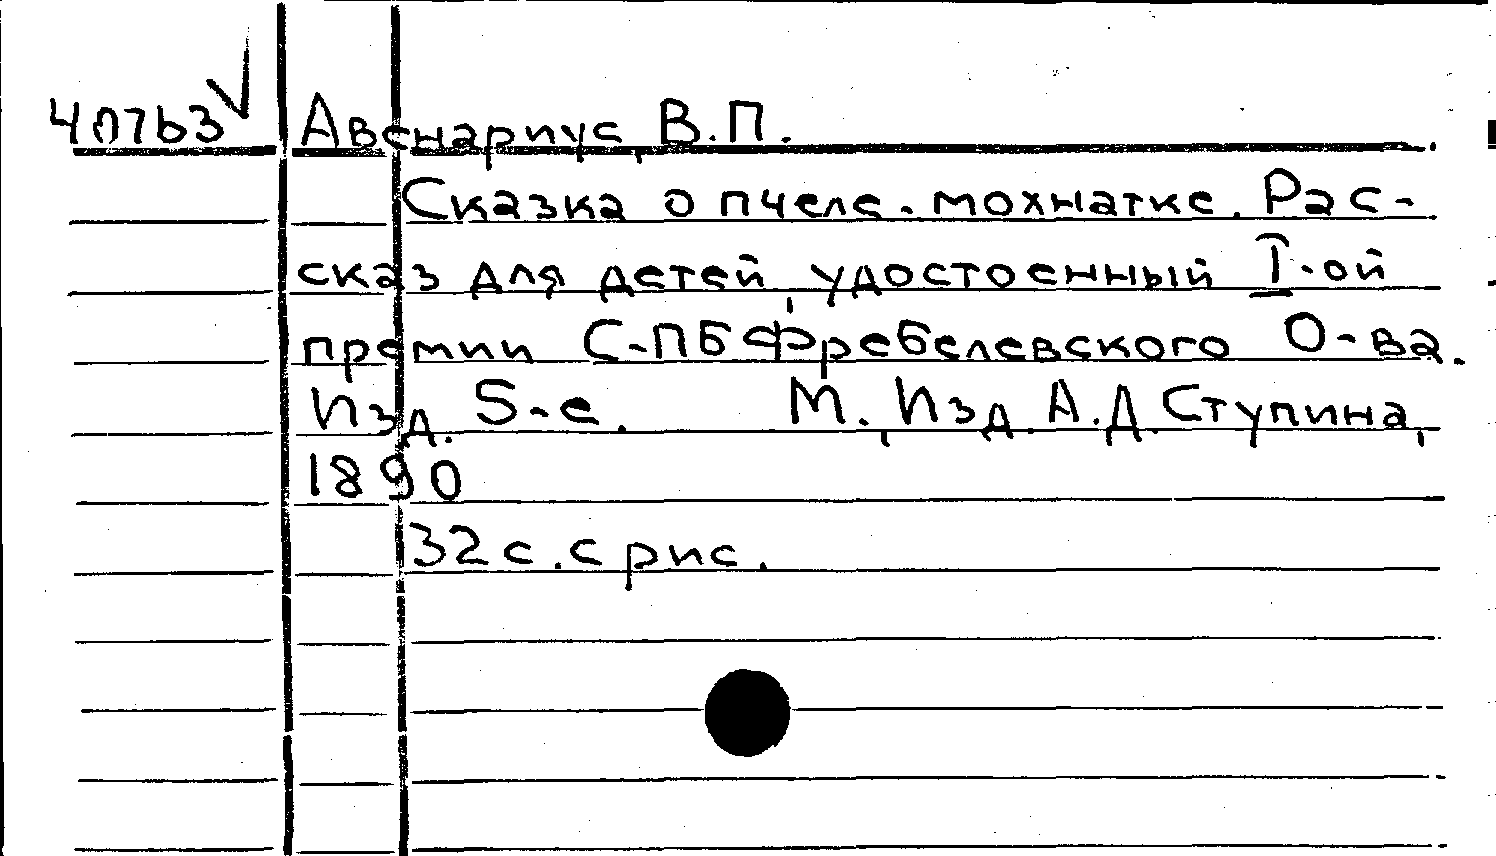 40763 Авенариус, В.П.
Сказка о пчеле-мохнатке. Рас-
сказ для детей, удостоенный I-ой
премии С-ПБ Фребелевского О-ва.
Изд. 5-е. М., Изд. А.Д. Ступина,
1890
32 с. с рис.